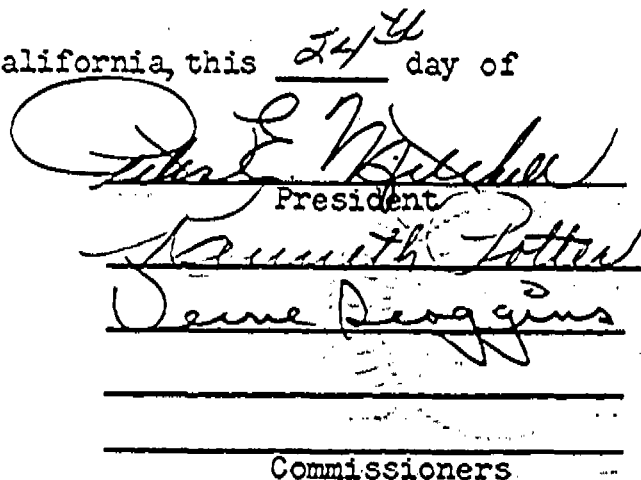 alifornia, this 24th day of
Peter E. Mitchell
President
Kenneth Potter
Verne Scoggins
Commissioners